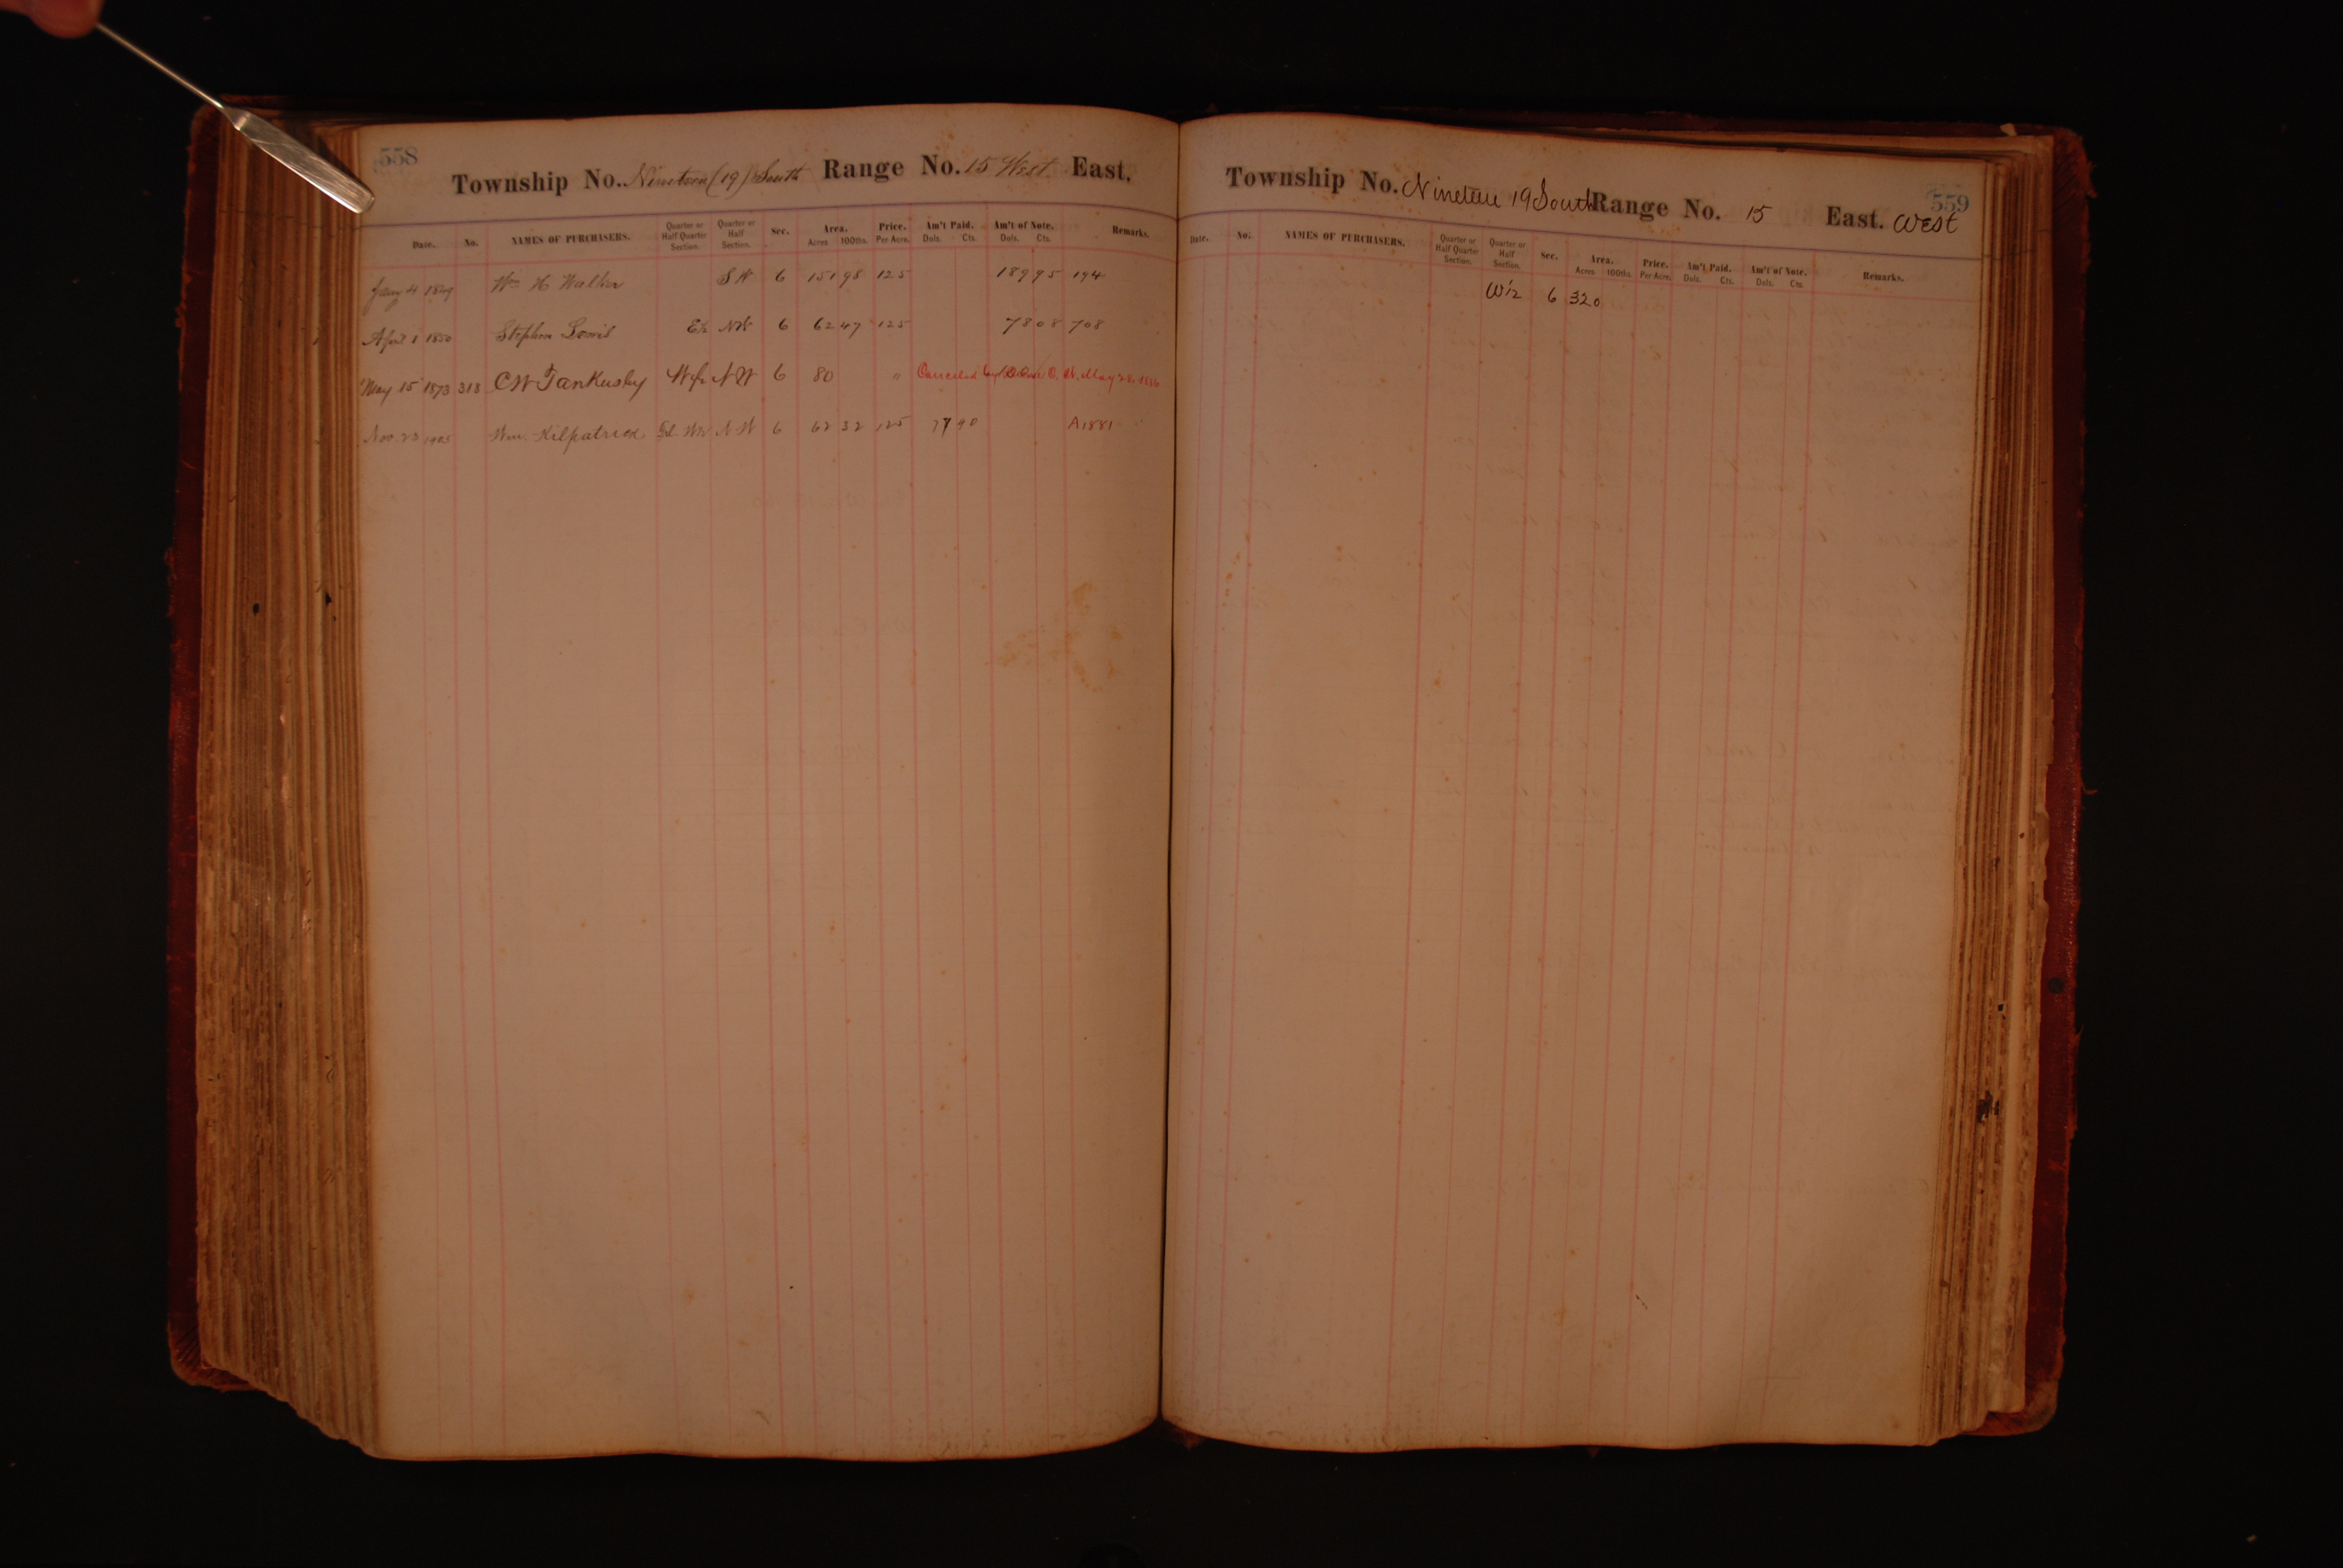 558
Township No. Nineteen (19) South Range No. 15 West East.
Date. No. NAMES OF PURCHASERS. Quarter or Half Quarter Section. Quarter or Half Section. Sec. Area. Acres 100ths. Price. Per Acre. Am't Paid. Dols. Cts. Am't of Note. Dols. Cts. Remarks.
Jany 4 1849 Wm H Walker SW 6 151 98 125 189 95 194
April 1 1850 Stephen Lewis E½ NW 6 62 47 125 78 08 708
May 15 1873 318 CW Tankusley W½ NW 6 80 " 100 Canceled by May 28, 1886
Nov. 23 1905 Wm. Kilpatrick NW 6 62 32 125 77 90 A1881
559
Township No. Nineteen 19 South Range No. 15 East. West
Date. No. NAMES OF PURCHASERS. Quarter or Half Quarter Section. Quarter or Half Section. Sec. Area. Acres 100ths. Price. Per Acre. Am't Paid. Dols. Cts. Am't of Note. Dols. Cts. Remarks.
W½ 6 320